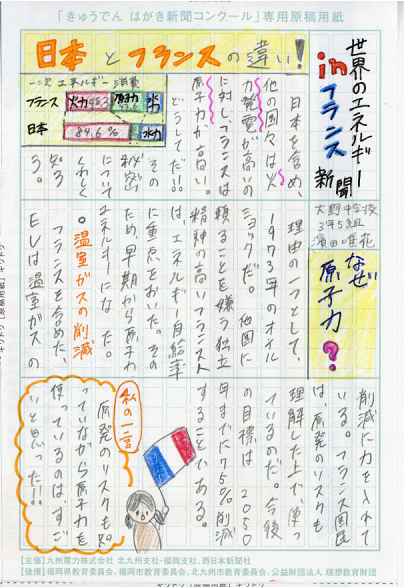 「きゅうでん はがき新聞コンクール」専用原稿用紙
世界のエネルギー
in フランス
新聞
大野中学校
3年5組
濱田唯花
日本とフランスの違い!
一次エネルギー消費
フランス 火力48.3 原子力 水力
日本 84.6% 水力
日本を含め、
他の国々は火
力発電が高いの
に対し、フランスは
原子力が高い。
どうしてだ!!
その
秘密
について
くわしく
知ろ
う。
なぜ
原子力?
理由の一つとして、
1973年のオイル
ショックだ。他国に
頼ることを嫌う独立
精神の高いフランス人
は、エネルギー自給率
に重点をおいた。その
ため、早期から原子力
エネルギーになった。
○温室ガスの削減
フランスを含めた、
EUは温室ガスの
削減に力を入れて
いる。フランス国民
は、原発のリスクも
理解した上で、使っ
ているのだ。今後
の目標は2050
年までに75%削減
することである。
私の一言
原発のリスクも知
っていながら原子力を
使っているのは、すご
いと思った!!
【主催】九州電力株式会社 北九州支社・福岡支社、西日本新聞社
【後援】福岡県教育委員会、福岡市教育委員会、北九州市教育委員会、公益財団法人 理想教育財団